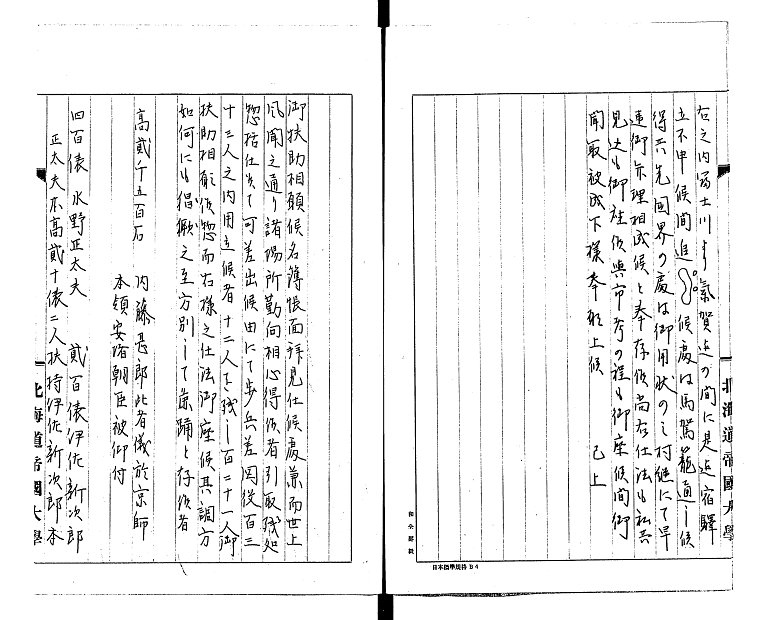 右之内富士川より氣賀迄の間に是迄宿驛
立不申候間追　候處は馬駕籠通し候
得共先国界の處は御用状のミ村継にて早
速御弁理相成候と奉存候尚右仕法も私共
見込も御座候與市考の程も御座候間御
聞取被成下様奉願上候　已上
北海道帝國大學
日本標準規格B4
御扶助相願候名簿帳面拝見仕候處兼而世上
風聞之通り諸場所勤向相心得候者引取残如
惣括仕候て可差出候由にて歩兵差図役百三
十三人之内用立候者十二人を残し百二十一人御
扶助相願候惣而右様之仕法御座候其調方
如何にも猖獗之至方別して奇踊と存候者
高貮千五百石　内藤甚郎此者儀於京師
本領安堵朝臣被仰付
四百俵　水野正太夫　貮百俵伊佐新次郎
正太夫不高貮十俵二人扶持伊佐新次郎本
北海道帝國大學